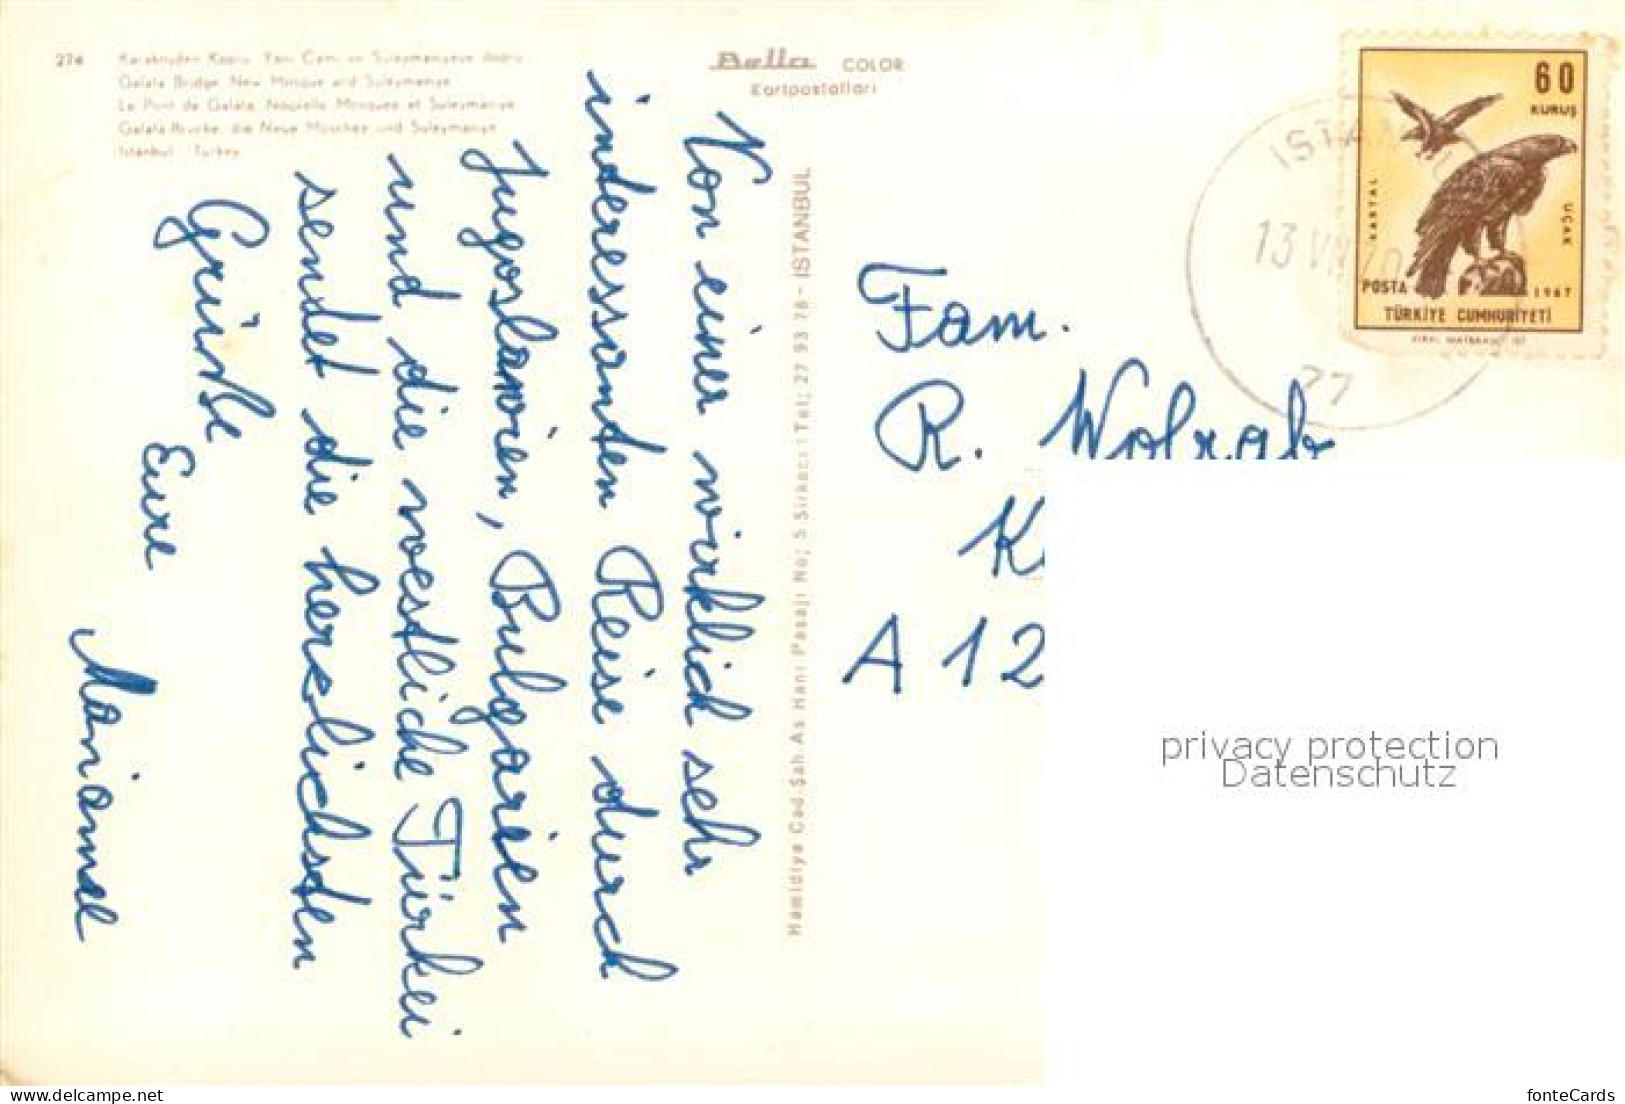 274
Karaköyden Köprü, Yeni Cami ve Süleymaniyeye doğru
Galata Bridge, New Mosque and Suleymaniye
Le Pont de Galata, Nouvelle Mosquee et Suleymaniye
Galata-Brücke, die Neue Moschee und Suleymaniye
Istanbul - Turkey
Bella COLOR
Kartpostalları
Von einer wirklich sehr
inderessanten Reise durch
Jugoslawien, Bulgarien
und die westliche Türkei
sendet die herzlichsten
Grüße
Eure
Marianne
Hamidiye Cad. Şah. As Hanı Pasajı No; 5 Sirkeci Tel; 27 93 78 - ISTANBUL
60
KURUŞ
KARTAL
UÇAK
POSTA 1967
TÜRKİYE CUMHURİYETİ
13 VII 70
77
Fam.
R. Wolrab
K
A 12
privacy protection
Datenschutz
www.delcampe.net
fonteCards